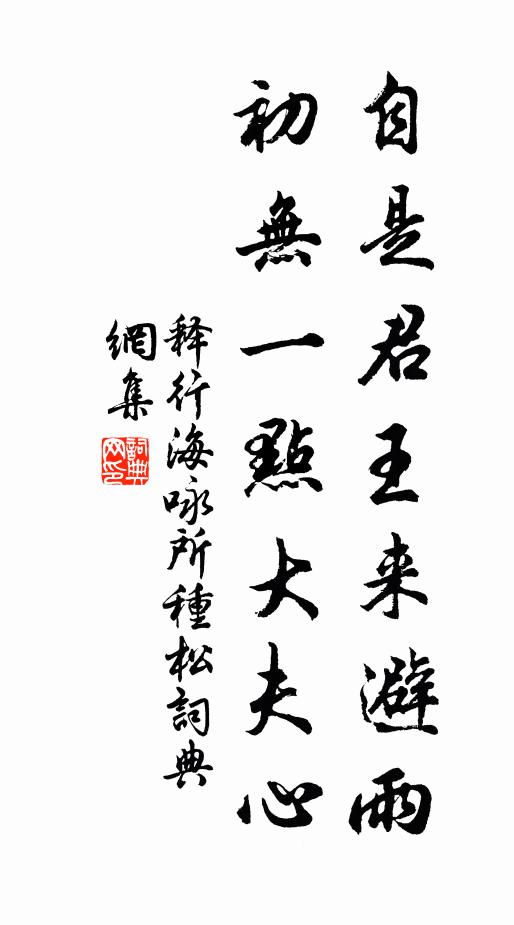 自是君王来避雨
初無一點大夫心
释行海咏所種松詞典
網集
詞典网印